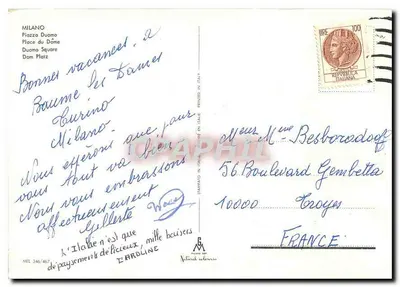 MILANO
Piazza Duomo
Place du Dôme
Duomo Square
Dom Platz
Bonnes vacances. à
Baume les Dames
Turino
Milano.
Nous espérons que pour
vous tout va bien
Nous vous embrassons
affectueusement
Gilberte
L'Italie n'est que
dépaysements délicieux, mille baisers
CAROLINE
LIRE 100
REPUBBLICA
ITALIANA
Meur Mme Besboradoff
56 Boulevard Gambetta
10000 Troyes
FRANCE